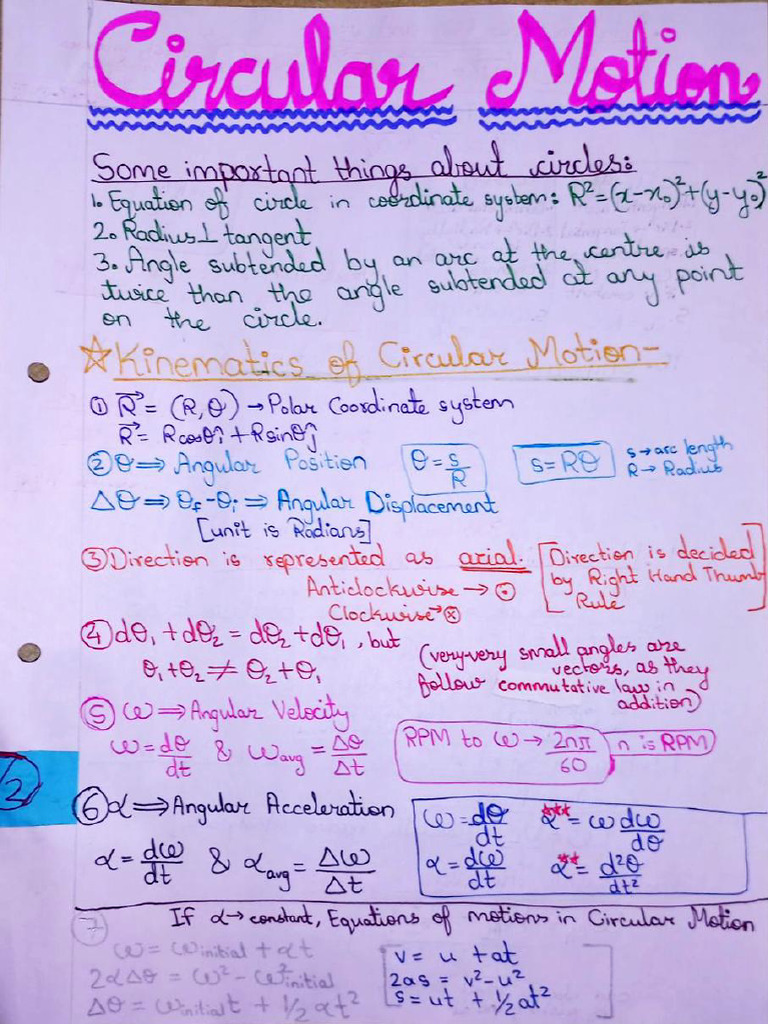 Circular Motion
Some important things about circles:
1. Equation of circle in coordinate system: R² = (x-x₀)² + (y-y₀)²
2. Radius ⊥ tangent
3. Angle subtended by an arc at the centre is
twice than the angle subtended at any point
on the circle.
☆ Kinematics of Circular Motion-
① R⃗ = (R, θ) → Polar Coordinate system
R⃗ = Rcosθî + Rsinθĵ
② θ ⇒ Angular Position θ = s/R s = Rθ s → arc length
R → Radius
Δθ ⇒ θf - θi ⇒ Angular Displacement
[unit is Radians]
③ Direction is represented as axial. [Direction is decided
by Right Hand Thumb
Rule]
Anticlockwise → ⊙
Clockwise → ⊗
④ dθ₁ + dθ₂ = dθ₂ + dθ₁, but
θ₁ + θ₂ ≠ θ₂ + θ₁
(very-very small angles are
vectors, as they
follow commutative law in
addition)
⑤ ω ⇒ Angular Velocity
ω = dθ/dt & ωavg = Δθ/Δt RPM to ω → 2nπ/60 n is RPM
⑥ α ⇒ Angular Acceleration
α = dω/dt & αavg = Δω/Δt
ω = dθ/dt ***α = ω dω/dθ
α = dω/dt **α = d²θ/dt²
⑦ If α → constant, Equations of motions in Circular Motion
ω = ωinitial + αt
2αΔθ = ω² - ω²initial
Δθ = ωinitial t + 1/2 αt²
[v = u + at
2as = v² - u²
s = ut + 1/2 at²]
2